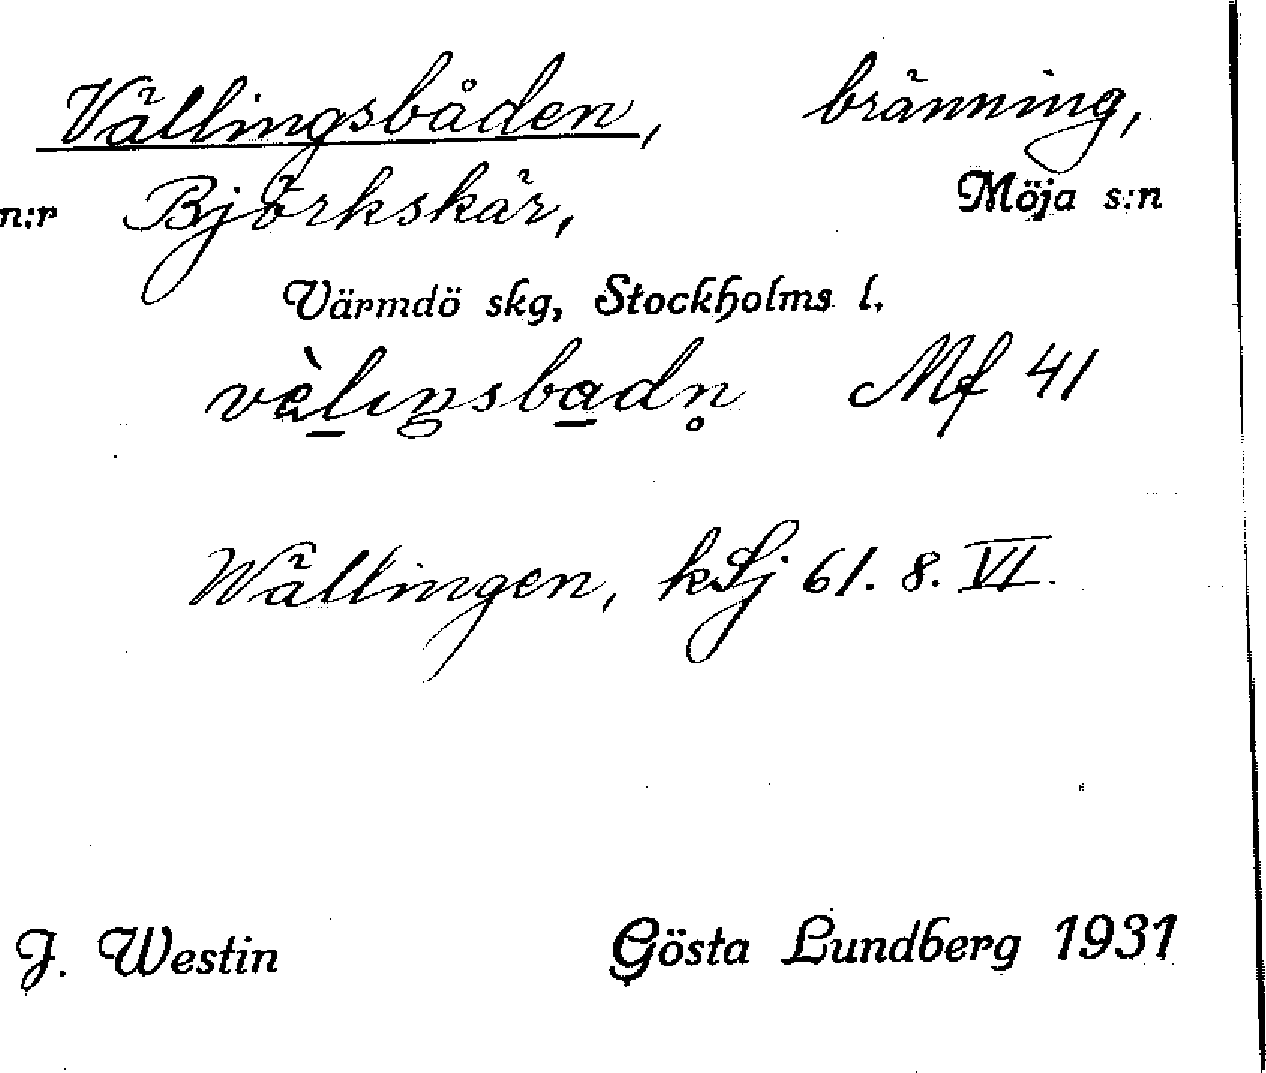 Vällingsbåden, bränning,
n:r Björkskär, Möja s:n
Värmdö skg, Stockholms l.
vὲlıŋsbadn̥ Mf 41
Wällingen, kSj 61. 8. VI.
J. Westin Gösta Lundberg 1931